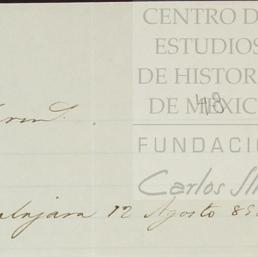 CENTRO D
ESTUDIOS
DE HISTOR
DE MÉXIC
48
FUNDACIÓ
Carlos Sl
alajara 12 Agosto 85